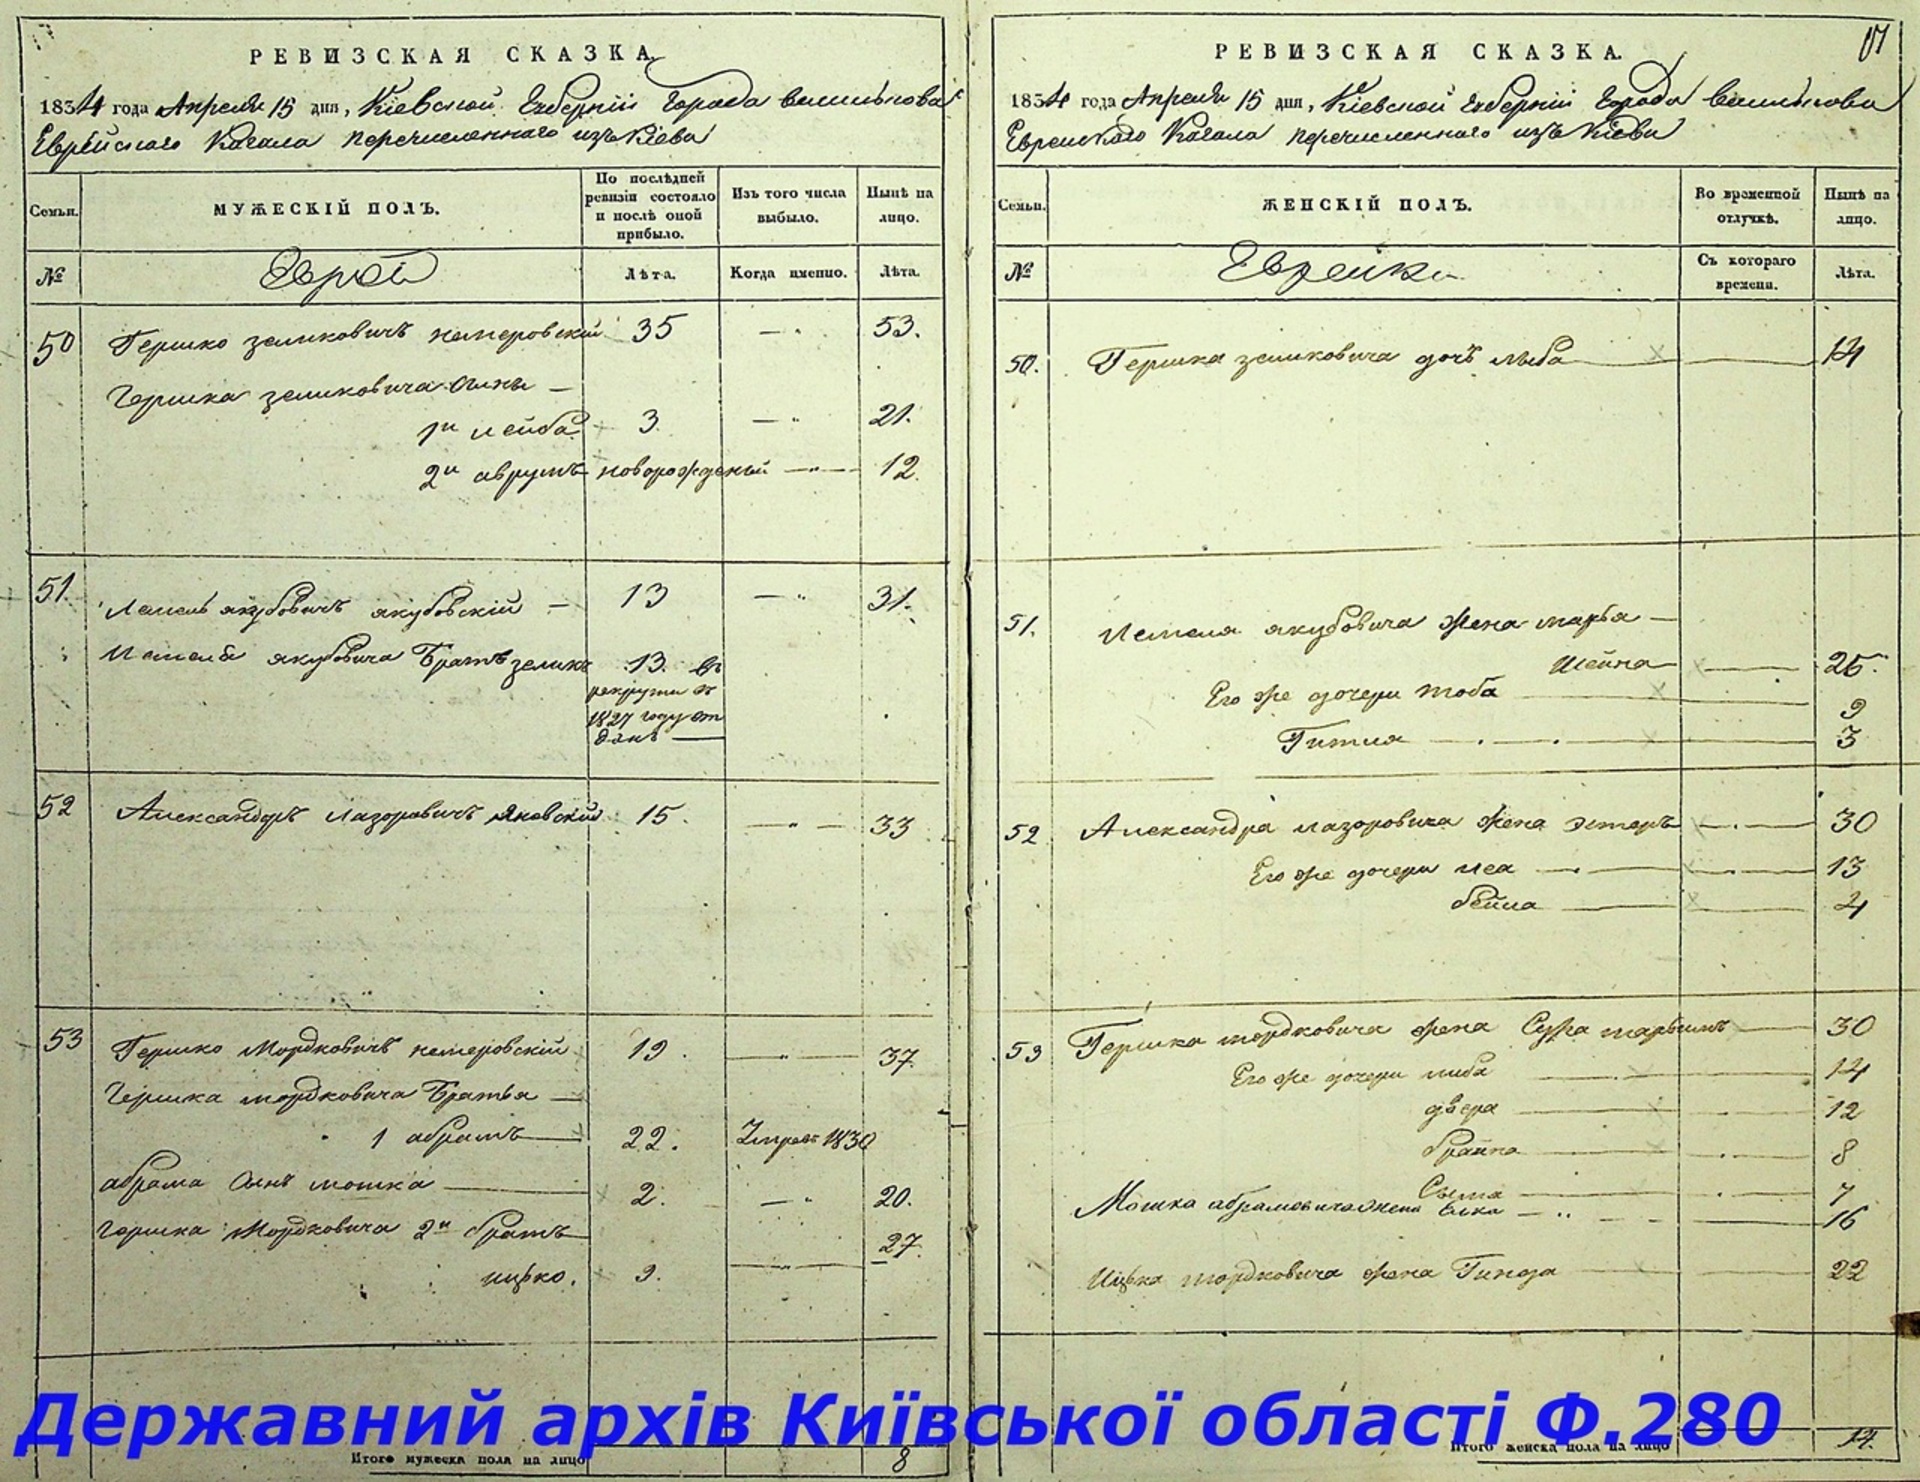 РЕВИЗСКАЯ СКАЗКА
1834 года Апреля 15 дня, Кіевской Губерніи Города василькова
Еврейскаго Кагала перечисленнаго изъ Кіева
Семьи.
МУЖЕСКІЙ ПОЛЪ.
По послѣдней
ревизіи состояло
и послѣ оной
прибыло.
Изъ того числа
выбыло.
Нынѣ на
лицо.
№
Еврей
Лѣта.
Когда именно.
Лѣта.
50 Гершко зеликовичъ немеровскій 35 — 53.
Гершка зеликовича сыны —
1й лейба 3 — 21.
2й аврумъ новорожденый — 12.
51. Лемель якубовичъ якубовскій — 13 — 31.
Лемеля якубовича Братъ зеликъ 13. въ
рекруты въ
1827 году от
данъ —
52 Александръ лазоровичъ Яновскій 15. — 33
53 Гершко Мордковичъ немеровскій 19. — 37.
Гершка мордковича Братья —
1 абрамъ 22. Умре въ 1830
абрама сынъ мошка 2. — 20.
гершка Мордковича 2й братъ
ицько. 9. — 27.
Итого мужеска пола на лицо 8
17
РЕВИЗСКАЯ СКАЗКА.
1834 года Апреля 15 дня, Кіевской Губерніи Города василькова
Еврейскаго Кагала перечисленнаго изъ Кіева
Семьи.
ЖЕНСКІЙ ПОЛЪ.
Во временной
отлучкѣ.
Нынѣ на
лицо.
№
Еврейки
Съ котораго
времени.
Лѣта.
50. Гершка зеликовича дочь лыба 14
51. Лемеля якубовича жена марья —
Шейна 25.
Его же дочери тоба 9
Гитля 3
52 Александра лазоровича жена эстеръ 30
Его же дочери леа 13
бейла 4
53 Гершка мордковича жена Сура марьимъ 30
Его же дочери либа 14
двера 12
брайна 8
Сыма 7
Мошка абрамовича жена Елка 16
Ицька мордковича жена Гинда 22
Итого женска пола на лицо 14.
Державний архів Київської області Ф.280